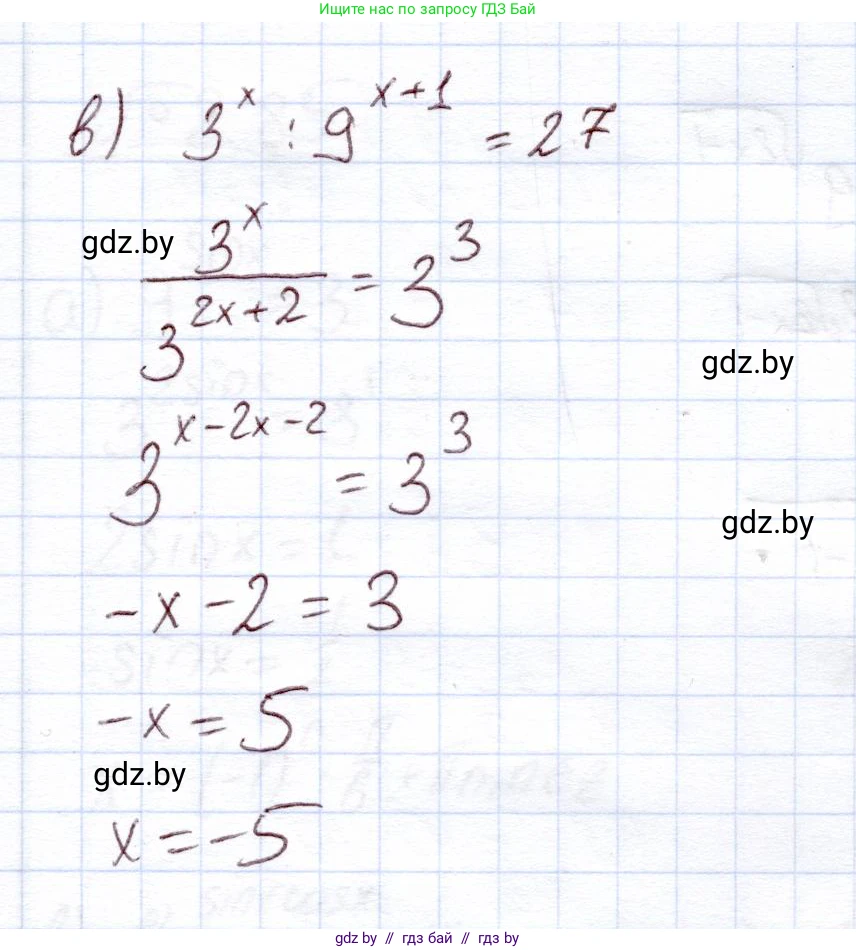 Ищите нас по запросу ГДЗ Бай
в) 3^x : 9^{x+1} = 27
gdz.by
3^x / 3^{2x+2} = 3^3
gdz.by
3^{x-2x-2} = 3^3
gdz.by
-x-2=3
-x=5
gdz.by
x=-5
gdz.by // гдз бай // гдз by